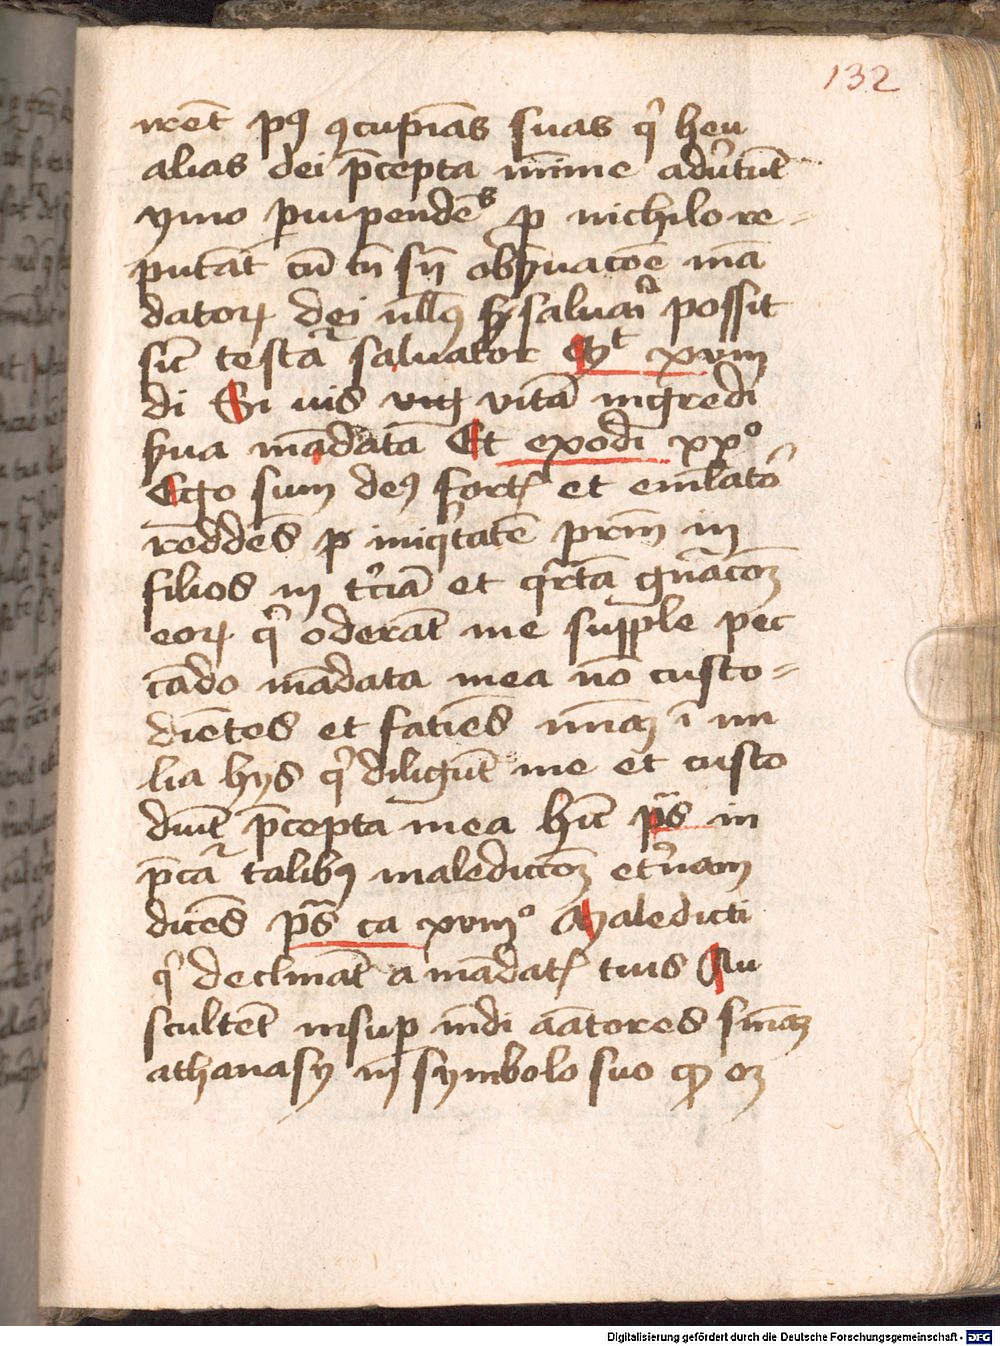 132
rẽt pꝰ ꝯcupiẽas suas qͥ heu
alias dei p̄cepta mime adũtũt
ymo p̱uipendẽs ꝓ nichilo re-
putãt cũ tñ sñ obẜuacõe mã
datoꝝ dei nullꝰ hͦ saluari possit
sic testat᷑ saluator Mͭ xviiij
di Si uis vitã ingredi
ẜua mãdata Et exodi xxº
Ego sum deꝰ fortꝭ et emlatoͬ
reddẽs ꝑ iniqͥtatẽ pr̃m in
filios in tͥciã et qͣrtã gnͣacõꝫ
eoꝝ qͥ oderãt me supple pec
cãdo mãdata mea nõ custo-
diẽtes et fatiẽs mĩaꝫ ĩ mi
lia hijs qͥ diligũt me et custo
diũt p̄cepta mea hĩc pͣs in
p̄cat᷑ talibꝰ maledictõꝫ etͥnam
dicẽs pͣs ca xviijº Maledicti
qͥ declinãt a mãdatꝭ tuis Au
scultẽt insuꝑ mũdi aãtores sñiaꝫ
athanasy in symbolo suo ꝙ oꝫ
Digitalisierung gefördert durch die Deutsche Forschungsgemeinschaft - DFG